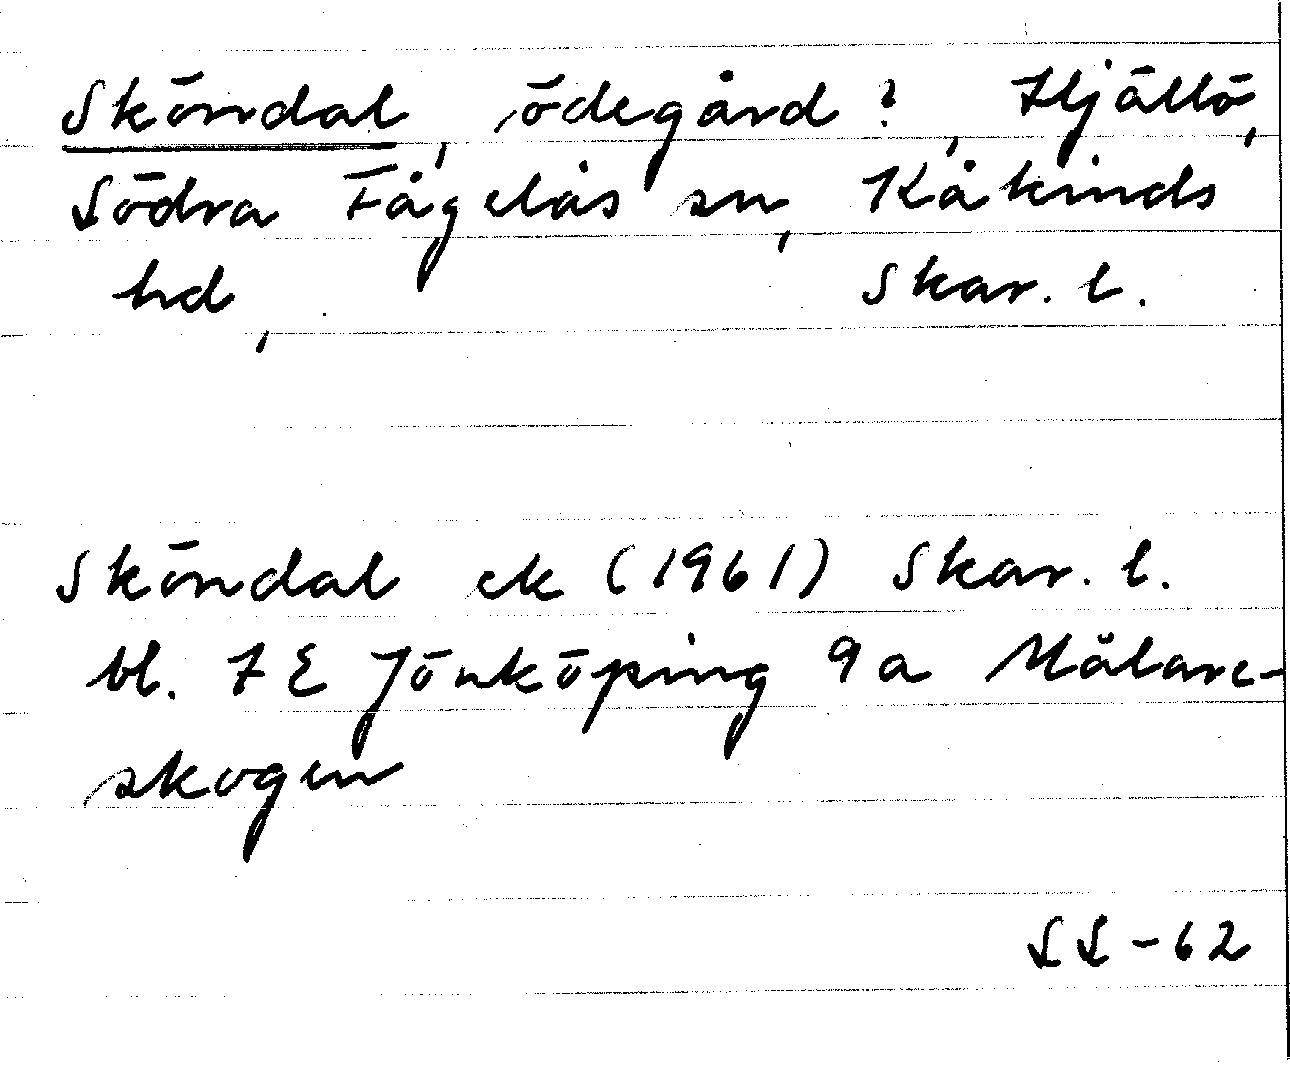 Sköndal, ödegård?, Hjällö,
Södra Fågelås sn, Kåkinds
hd, Skar. l.
Sköndal ek (1961) Skar. l.
bl. 7 E Jönköping 9 a Mölare-
skogen
SS - 62